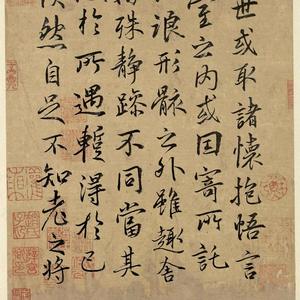 世或取諸懷抱悟言
室之內或因寄所託
浪形骸之外雖趣舍
殊靜躁不同當其
於所遇蹔得於己
然自足不知老之將